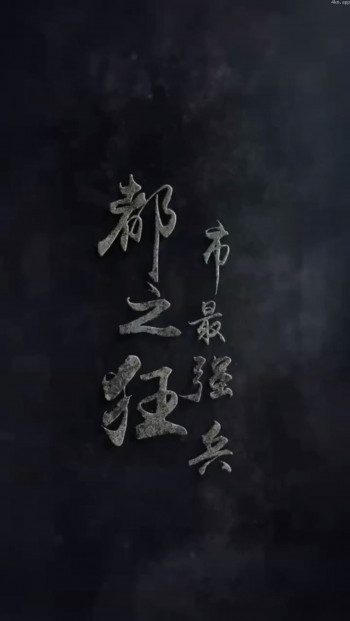 都之狂
市最强兵